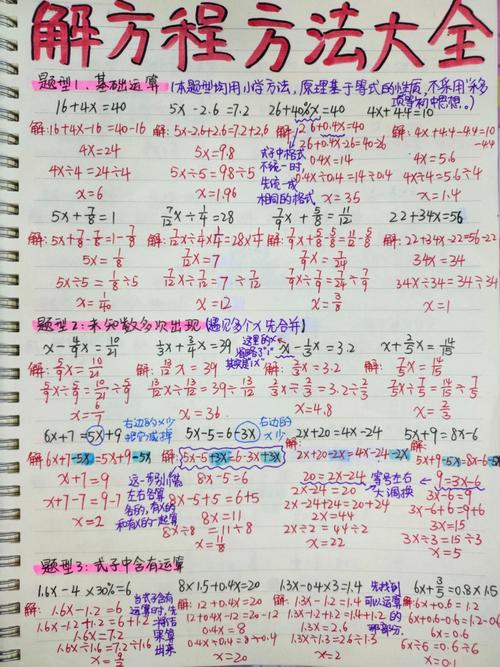 解方程方法大全
题型1、基础运算（本题型均用小学方法，原理基于等式的性质，不采用"移项"等初中思想。）
16+4x=40
解：16+4x-16=40-16
4x=24
4x÷4=24÷4
x=6
5x-2.6=7.2
解：5x-2.6+2.6=7.2+2.6
5x=9.8
5x÷5=98÷5
x=1.96
26+40%x=40
解：26+0.4x=40
26+0.4x-26=40-26
0.4x=14
0.4x÷0.4=14÷0.4
x=35
式子中格式
不统一时，
先统一成
相同的格式
4x+4.4=10
解：4x+4.4-4.4=10
-4.4
4x=5.6
4x÷4=5.6÷4
x=1.4
5x+7/8=1
解：5x+7/8-7/8=1-7/8
5x=1/8
5x÷5=1/8÷5
x=1/40
7/12x÷1/4=28
解：7/12x÷1/4x1/4=28x1/4
7/12x=7
7/12x÷7/12=7÷7/12
x=12
7/9x+5/8=11/12
解：7/9x+5/8-5/8=11/12-5/8
7/9x=7/24
7/9x÷7/9=7/24÷7/9
x=3/8
22+34x=56
解：22+34x-22=56-22
34x=34
34x÷34=34÷34
x=1
题型2：未知数多次出现（遇见多个x先合并）
x-4/9x=10/21
解：5/9x=10/21
5/9x÷5/9=10/21÷5/9
x=6/7
1/3x+3/4x=39
解：13/12x=39
13/12x÷13/12=39÷13/12
x=36
这里的x
省略了"1"
其实是1x
x-1/3x=3.2
解：2/3x=3.2
2/3x÷2/3=3.2÷2/3
x=4.8
x+2/5x=14/15
解：7/5x=14/15
7/5x÷7/5=14/15÷7/5
x=2/3
右边的x少
把它减掉
6x+7=5x+9
解：6x+7-5x=5x+9-5x
x+7=9
x+7-7=9-7
x=2
这一步别忙
左右各算
各的，有x的
和有x的一起算
右边的
x少
5x-5=6-3x
5x-5+3x=6-3x+3x
8x-5=6
8x-5+5=6+5
8x=11
8x÷8=11÷8
x=11/8
2x+20=4x-24
解：
2x+20-2x=4x-24-2x
20=2x-24
2x-24=20
2x-24+24=20+24
2x=44
2x÷2=44÷2
x=22
等号左右
大调换
5x+9=8x-6
解：5x+9-5x=8x-6-5x
9=3x-6
3x-6=9
3x-6+6=9+6
3x=15
3x÷3=15÷3
x=5
题型3：式子中含有运算
1.6x-4x30%=6
解：1.6x-1.2=6
1.6x-1.2+1.2=6+1.2
1.6x=7.2
1.6x÷1.6=7.2÷1.6
当式子含有
运算时，先
8x1.5+0.4x=20
解：12+0.4x=20
12+0.4x-12=20-12
0.4x=8
0.4x÷0.4=8÷0.4
x=20
1.3x-0.4x3=1.4
解：1.3x-1.2=1.4
1.3x-1.2+1.2=1.4+1.2
1.3x=2.6
1.3x÷1.3=2.6÷1.3
x=2
先找到
可以运算
的
那部分
6x+3/5=0.8x1.5
解：6x+0.6=1.2
6x+0.6-0.6=1.2-0.6
6x=0.6
6x÷6=0.6÷6